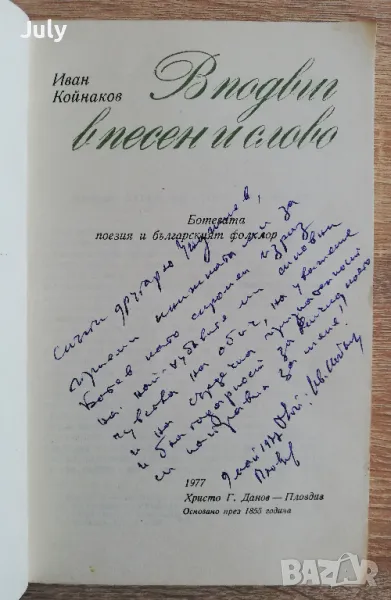 July
Иван
Койнаков
В подвиг
в песен и слово
Ботевата
поезия и българският фолклор
другарю
приеми книжката ми за
Ботев като скромен израз
на най-хубавите ми синовни
чувства на обич, на уважение
и на сърдечна признателност
и благодарност за всичко, което
си направил за мене!
9 май 1977
Пловдив
1977
Христо Г. Данов — Пловдив
Основано през 1855 година
BAZAR.BG